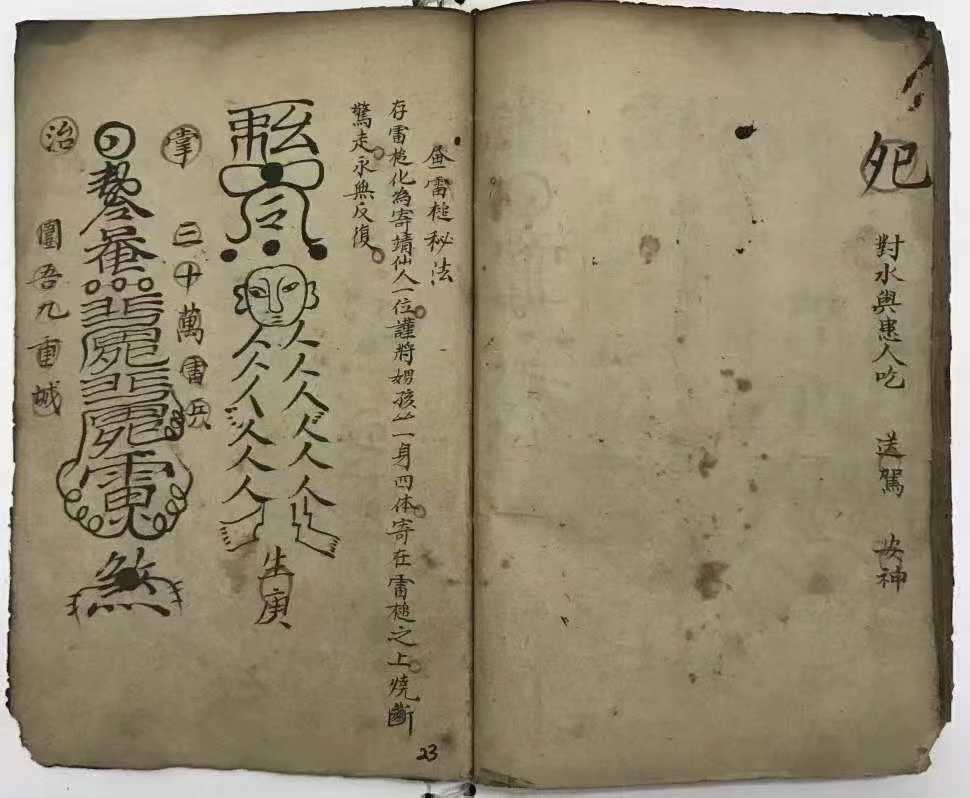 对水與患人吃 送駕 安神
雷槌秘法
存雷槌化為寄靖仙人一位謹將娚孩𠆢一身四体寄在雷槌之上燒斷
驚走永無反復
生庚
掌三十萬雷兵
煞
治
圍吾九重城
23